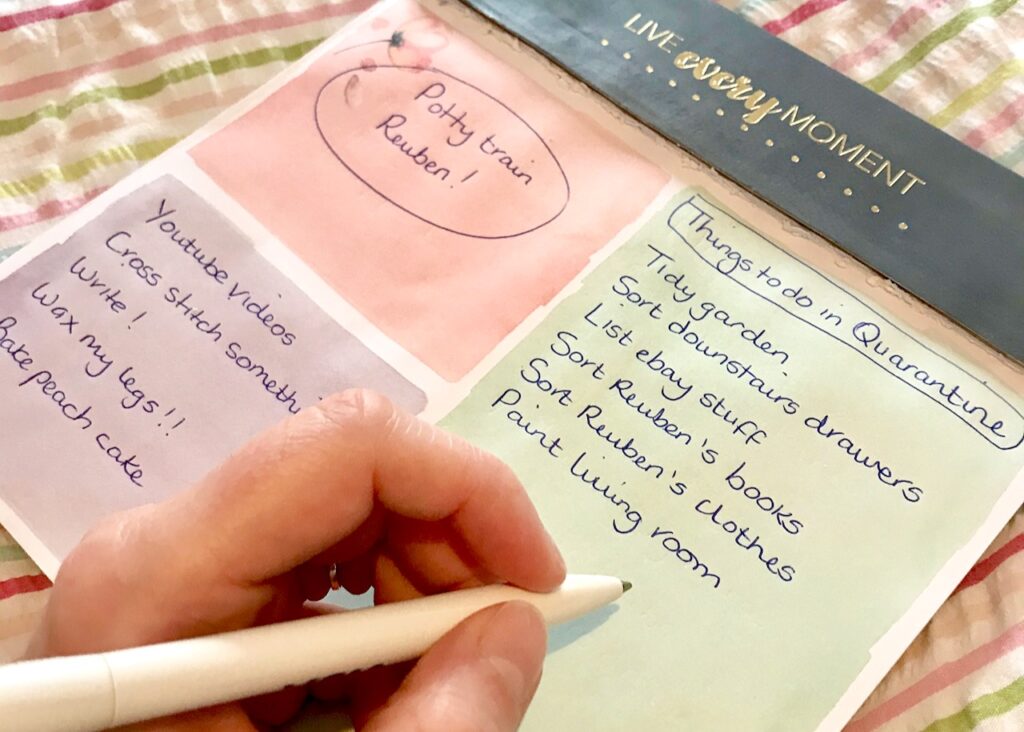 LIVE every MOMENT
Potty train
Reuben!
Things to do in Quarantine
Tidy garden
Sort downstairs drawers
List ebay stuff
Sort Reuben's books
Sort Reuben's clothes
Paint living room
Youtube videos
Cross stitch somethi
Write!
Wax my legs!!
Bake peach cake